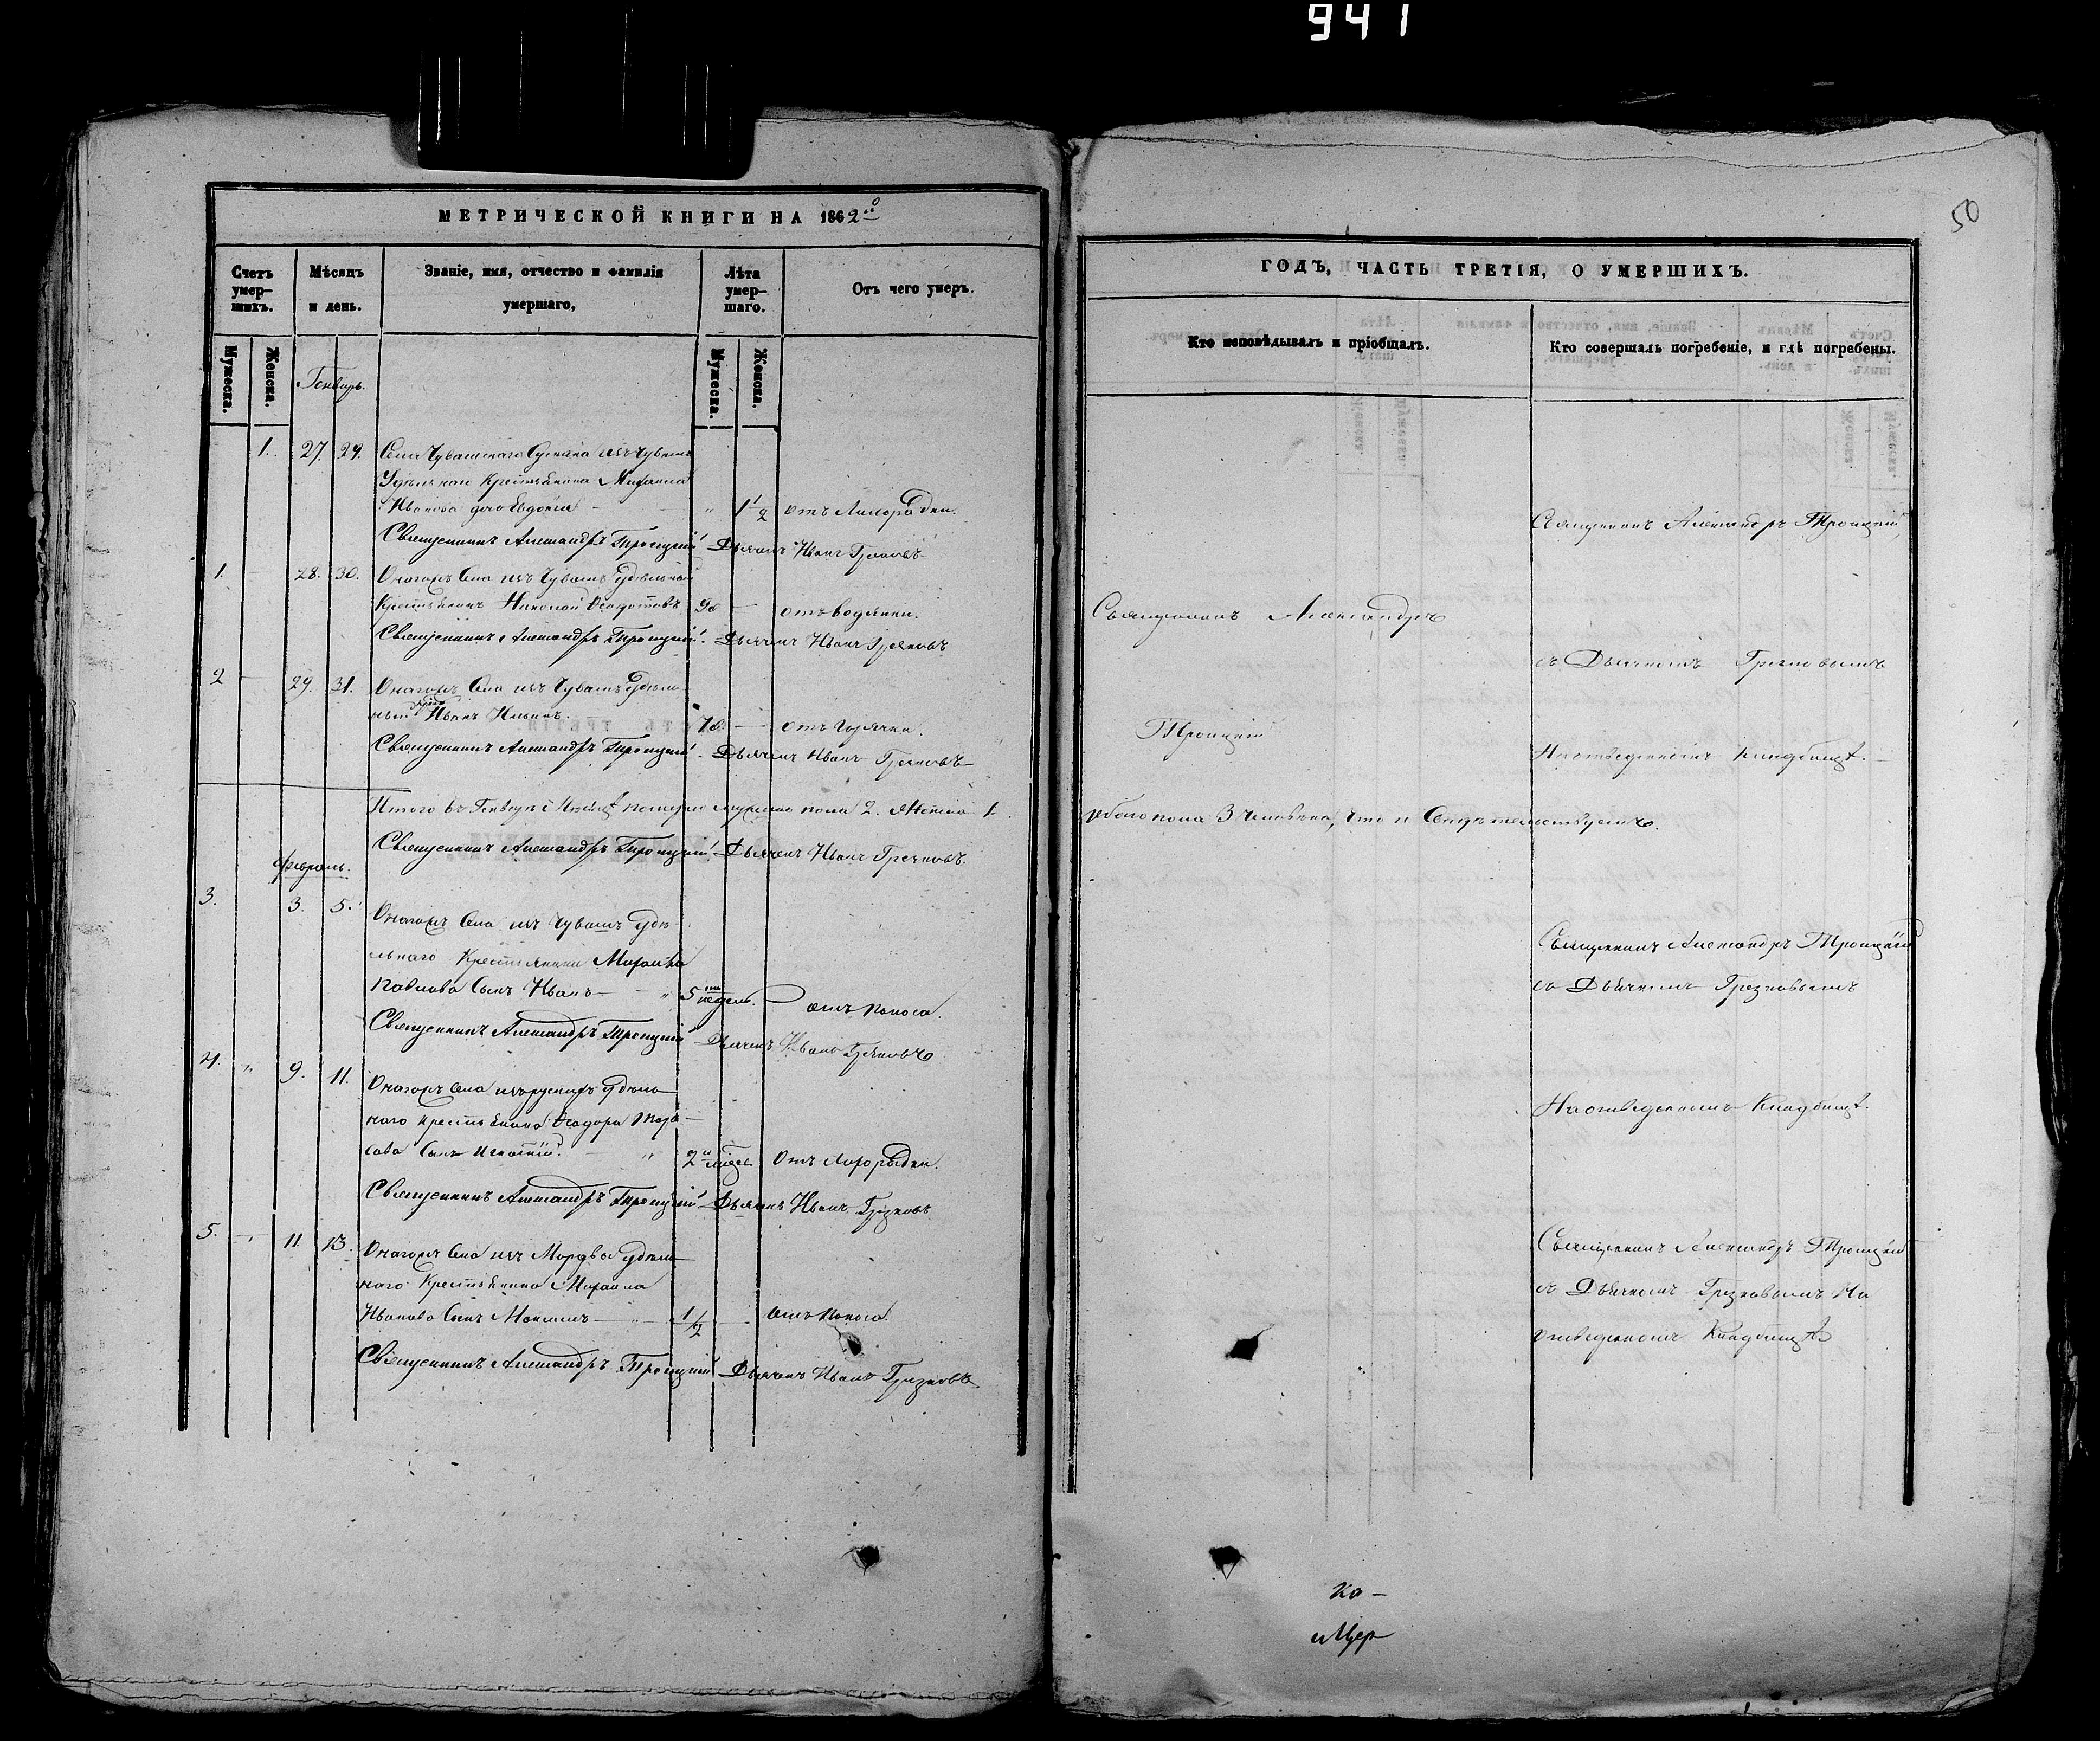 941
50
МЕТРИЧЕСКОЙ КНИГИ НА 1862ой
Счетъ умер-шихъ.
Мѣсяцъ и день.
Званіе, имя, отчество и фамилія умершаго,
Лѣта умер-шаго.
Отъ чего умеръ.
Мужеска.
Женска.
Мужеска.
Женска.
Генварь.
1. 27. 29. Села Чувашскаго изъ чувашъ
Удѣльнаго Крестьянина Михаила
Иванова дочь Евдокія 1 1/2 отъ Лихорадки.
Священникъ Александръ Троицкій Дьячекъ Иванъ Грязновъ
1. 28. 30. Онагожъ Села изъ Чувашъ удѣльной
Крестьянинъ Николай Ѳедотовъ 90 отъ водянки.
Священникъ Александръ Троицкій. Дьячекъ Иванъ Грязновъ
2 29. 31. Онагожъ Села изъ Чувашъ удѣль-
ный Иванъ Ильинъ. 70 отъ горячки.
Священникъ Александръ Троицкій. Дьячекъ Иванъ Грязновъ
Итого въ Генварѣ Мѣсяцѣ померло мужеска пола 2. Женска 1.
Священникъ Александръ Троицкій. Дьячекъ Иванъ Грязновъ.
Февраль.
3. 3. 5. Онагожъ Села изъ Чувашъ удѣ-
льнаго Крестьянина Михаила
Павлова Сынъ Иванъ 5 недель. отъ поноса.
Священникъ Александръ Троицкій Дьячекъ Иванъ Грязновъ
4. " 9. 11. Онагожъ Села изъ русскихъ удѣль-
наго крестьянина Ѳеодора Тара-
сова Сынъ Игнатій. 2 отъ Лихорадки.
Священникъ Александръ Троицкій Дьячекъ Иванъ Грязновъ
5. 11. 13. Онагожъ Села изъ Мордвы удѣль-
наго Крестьянина Михаила
Иванова Сынъ Максимъ 1/2 отъ поноса.
Священникъ Александръ Троицкій Дьячекъ Иванъ Грязновъ
ГОДЪ, ЧАСТЬ ТРЕТІЯ, О УМЕРШИХЪ.
Кто исповѣдывалъ и пріобщалъ.
Кто совершалъ погребеніе, и гдѣ погребены.
Священникъ Александръ Троицкій
Священникъ Александръ
съ Дьячкомъ Грязновымъ
Троицкій
На отведенномъ кладбищѣ.
обоего пола 3 человѣка, что и Свидѣтельствуемъ.
Священникъ Александръ Троицкій
съ Дьячкомъ Грязновымъ
На отведенномъ Кладбищѣ.
Священникъ Александръ Троицкій
съ Дьячкомъ Грязновымъ На
отведенномъ Кладбищѣ